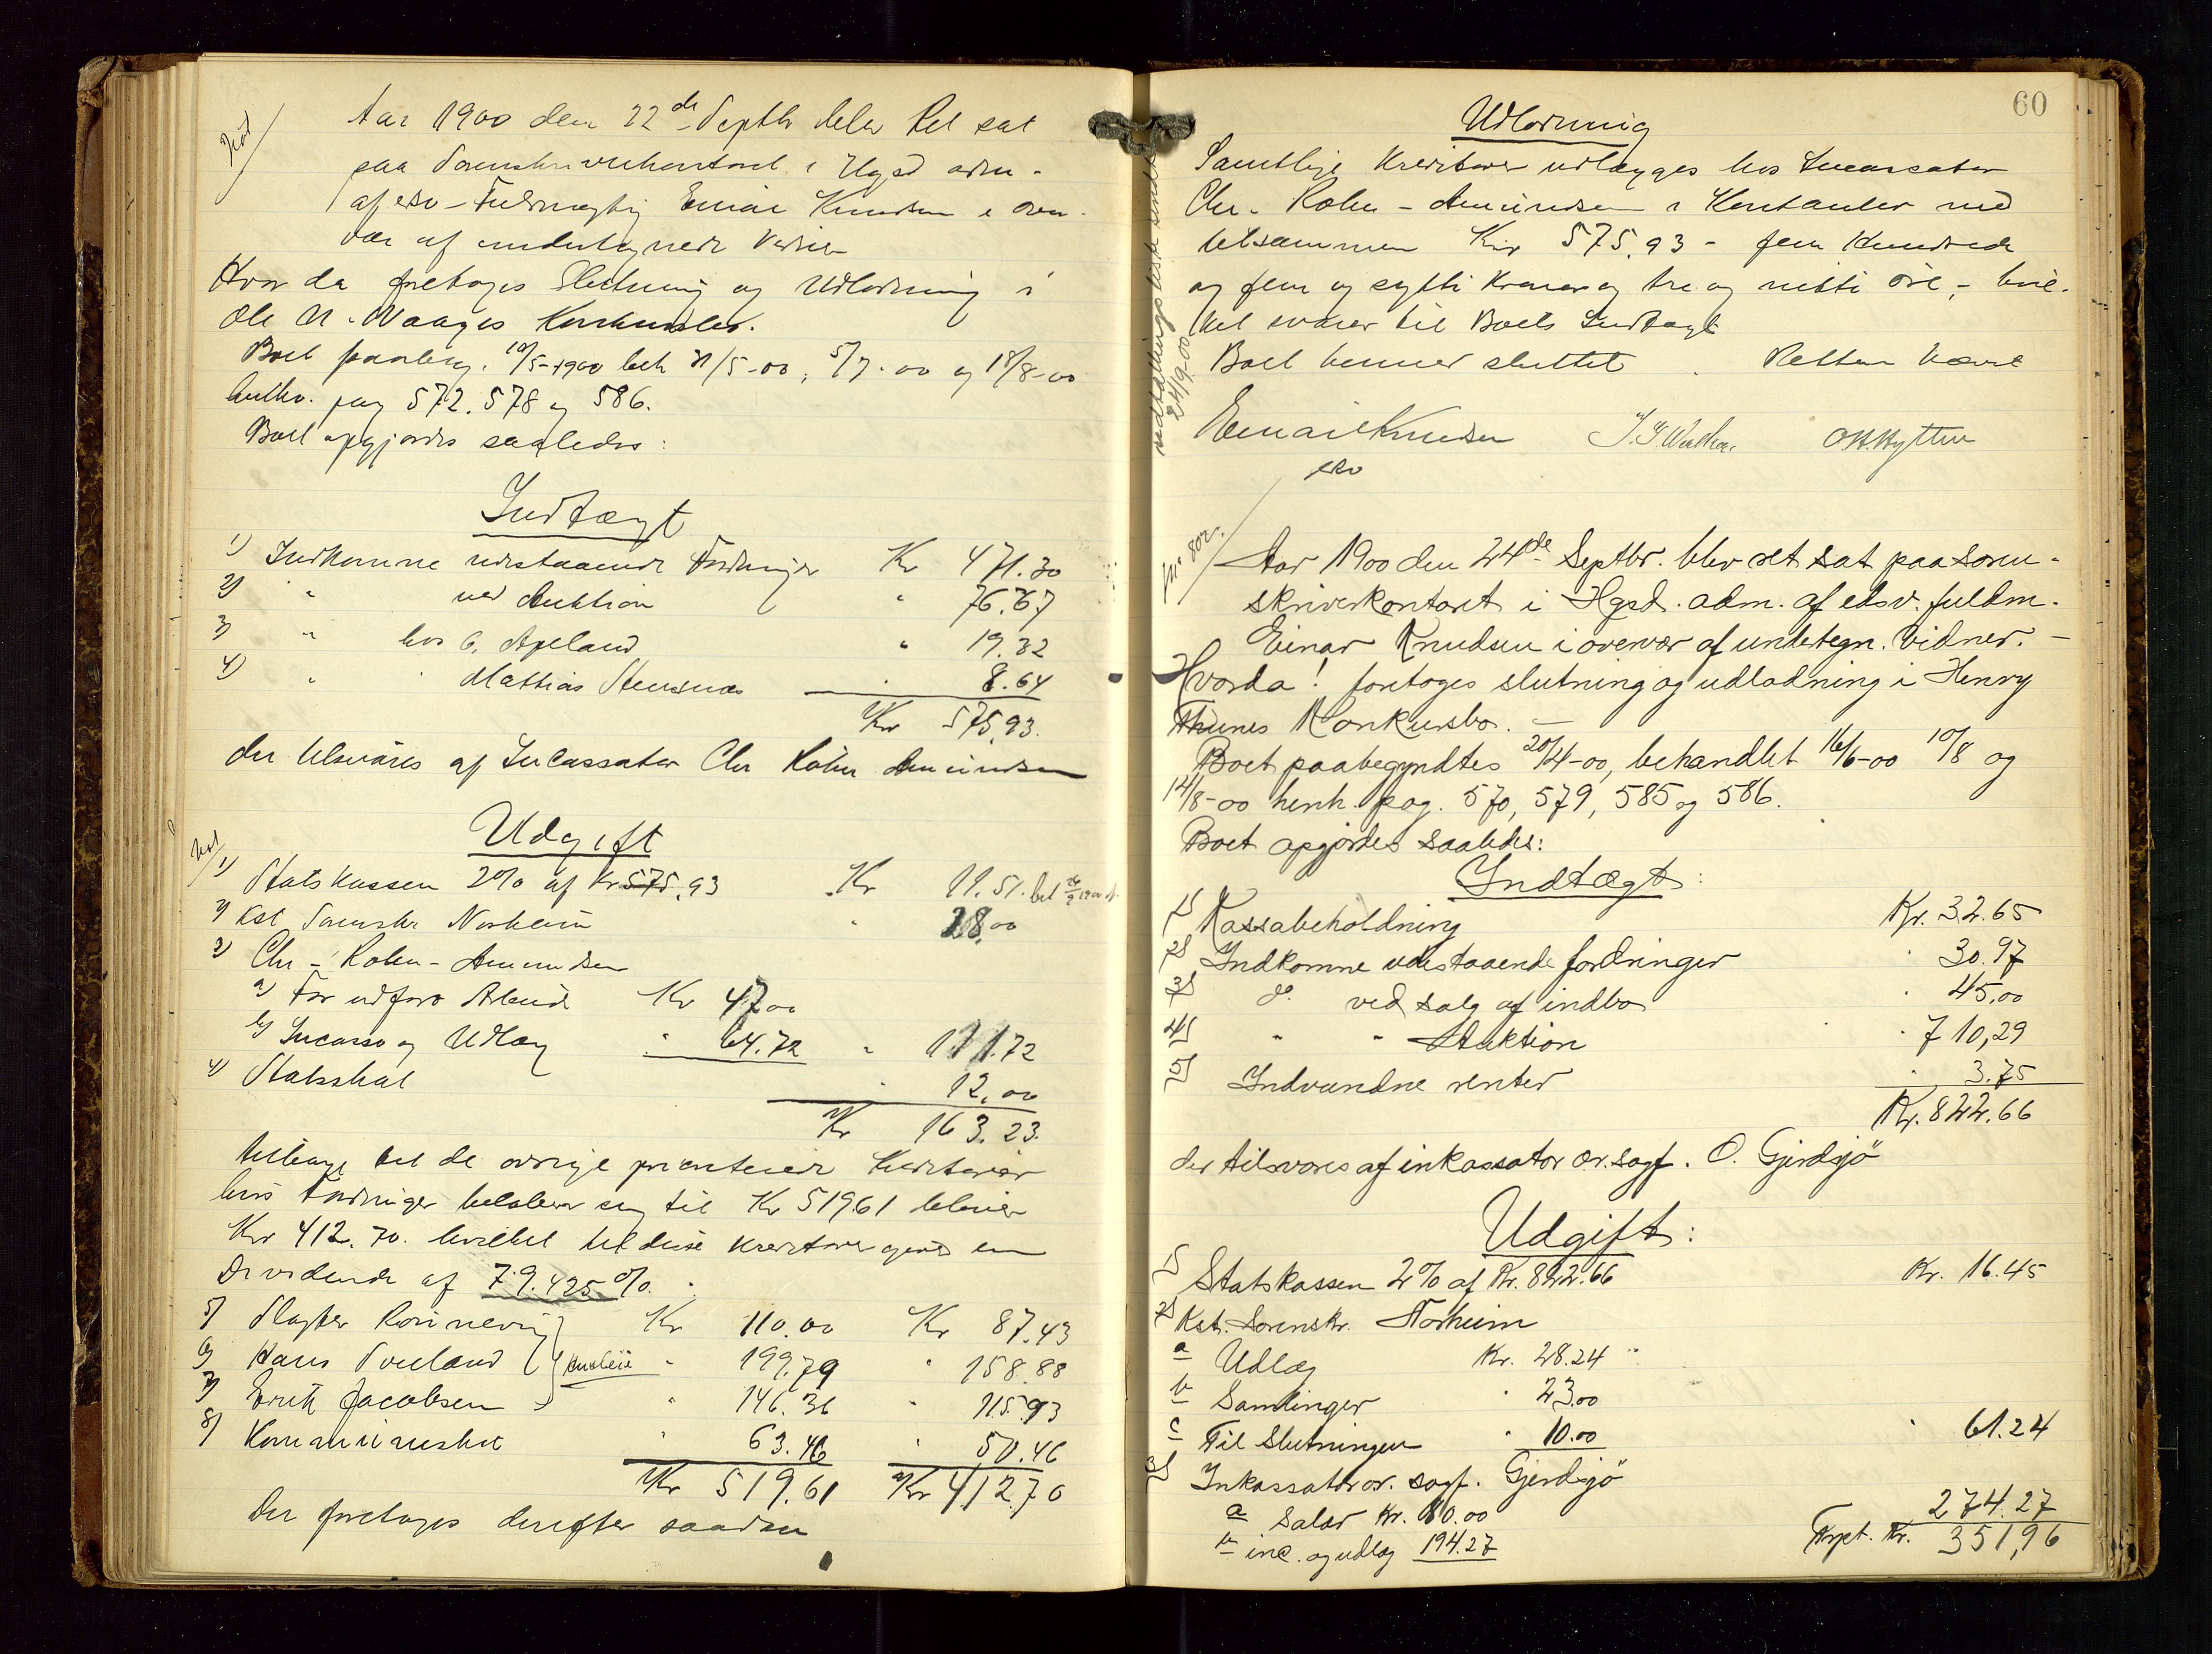 Aar 1900 den 22de Septbr blev Ret sat
paa Sorenskriverkontoret i Hgsd adm.
af edsv. Fuldmægtig Einar Knudsen i over-
vær af undertegnede Vidner
Hvor da foretoges Slutning og Udlodning i
Ole N. Waages Konkursbo.
Boet paabeg. 10/5-1900 beh 31/5-00, 5/7-00 og 18/8-00
behv. pag 572. 578 og 586.
Boet opgjordes saaledes:
Indtægt
1) Indkomne udestaaende Fordringer Kr 471.30
2) " ved Auktion " 76.67
3) " hos C. Apeland " 19.32
4) " Mathias Stensnæs " 8.64
Kr 575,93.
der tilsvares af Incassator Chr Holm Amundsen
Udgift
1) Statskassen 2% af Kr 575.93 Kr 11.51.
2) Kst Sorenskr Norheim " 28.00
3) Chr - Holm - Amundsen
a) For udført Arbeid Kr 47.00
b) Incasso og Udlæg " 64.72 " 111.72
4) Statsskat " 12.00
Kr 163.23.
tilbage til de øvrige prioriterede Kreditorer
hvis Fordringer beløber sig til Kr 519.61 bliver
Kr 412.70. hvilket til disse Kreditorer giver en
Dividende af 79.425 %.
5) Slagter Rønnevig Kr 110.00 Kr 87.43
6) Hans Sveland Husleie " 199.79 " 158.88
7) Erik Jacobsen " 146.36 " 115.93
8) Kommuneskat " 63.46 " 50.46
Kr 519.61 Kr 412.70
Der foretoges derefter saadan
60
Udlodning
Samtlige Kreditorer udlægges hos Incassator
Chr. Holm - Amundsen i Kontanter med
tilsammen Kr 575.93 - fem Hundrede
og fem og sytti Kroner og tre og nitti Øre, - hvil-
ket svarer til Boets Indtægt
Boet hermed sluttet. Retten hævet
Einar Knudsen O.K. Hytten
edsv
24/9-00
Aar 1900 den 24de Septbr. blev ret sat paa soren-
skriverkontoret i Hgsd. adm. af edsv. fuldm.
Einar Knudsen i overvær af undertegn. vidner. -
Hvorda! foretoges slutning og udlodning i Henry
Thunes Konkursbo. -
Boet paabegyndtes 20/4-00, behandlet 16/6-00 10/8 og
14/8-00 henh. pag. 570, 579, 585 og 586.
Boet opgjordes saaledes:
Indtægt:
1) Kassabeholdning Kr. 32.65
2) Indkomne udestaaende fordringer " 30.97
3) do. ved salg af indbo " 45.00
4) " " Auktion " 710,29
5) Indvundne renter " 3.75
Kr. 822.66
der tilsvares af inkassator or. sagf. O. Gjerdsjø
Udgift:
1) Statskassen 2% af Kr. 822.66 Kr. 16.45
2) Kst. Sorenskr. Norheim
a Udlæg Kr. 28.24
b Samlinger " 23.00
c Til Slutningen " 10.00 " 61.24
3) Inkassator or. sagf. Gjerdsjø
a Salær Kr. 80.00 274.27
b inc. og udlæg 194.27 Trspt. Kr. 351,96